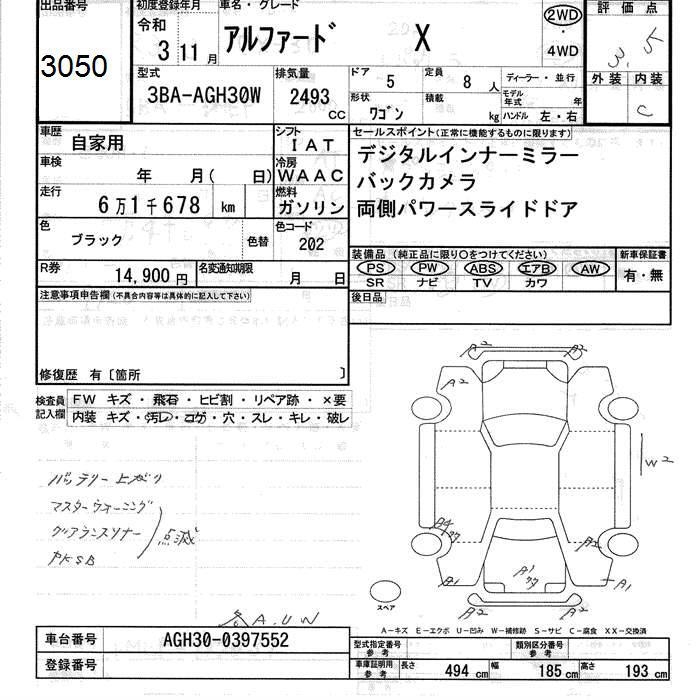 出品番号 初度登録年月 車名・グレード 評価点
3050 令和 3 11月 アルファード X 2WD・4WD 3.5
外装 内装
C
型式 排気量 ドア 5 定員 8人 ディーラー・並行
3BA-AGH30W 2493cc 形状 ワゴン 積載 kg モデル年式 年
ハンドル 左・右
車歴 自家用 シフト IAT セールスポイント(正常に機能するものに限ります)
車検 年 月( 日) 冷房 WAAC デジタルインナーミラー
走行 6万1千678 km 燃料 ガソリン バックカメラ
両側パワースライドドア
色 ブラック 色替 色コード 202
装備品 (純正品に限り○をつけてください) 新車保証書
R券 14,900円 名変通知期限 月 日 PS PW ABS エアB AW 有・無
SR ナビ TV カワ
注意事項申告欄(不具合内容等は具体的に記入して下さい) 後日品
修復歴 有〔箇所 〕
検査員記入欄 FW キズ・飛石・ヒビ割・リペア跡・×要
内装 キズ・汚レ・コゲ・穴・スレ・キレ・破レ
A2 A2
A2
W2
バッテリー上がり
マスターウォーニング
クリアランスソナー 点滅
PKSB
A4 A2
A1 A1 A1
スペア
A2 A2
A.UW
A-キズ E-エクボ U-凹み W-補修跡 S-サビ C-腐食 XX-交換済
車台番号 AGH30-0397552 型式指定番号 参考 類別区分番号 参考
登録番号 車庫証明用 参考 長さ 494cm 幅 185cm 高さ 193cm